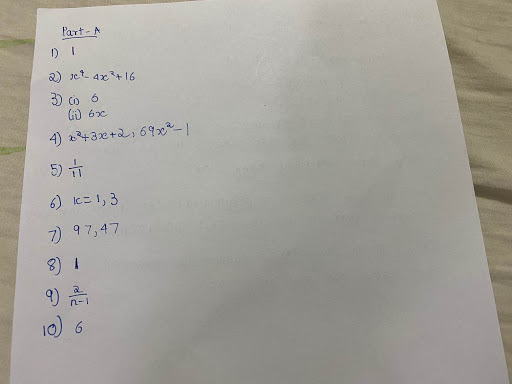 Part-A
1) 1
2) x⁹-4x²+16
3) (i) 6
(ii) 6x
4) x²+3x+2, 69x²-1
5) 1/11
6) K=1,3
7) 97,47
8) 1
9) 2/n-1
10) 6